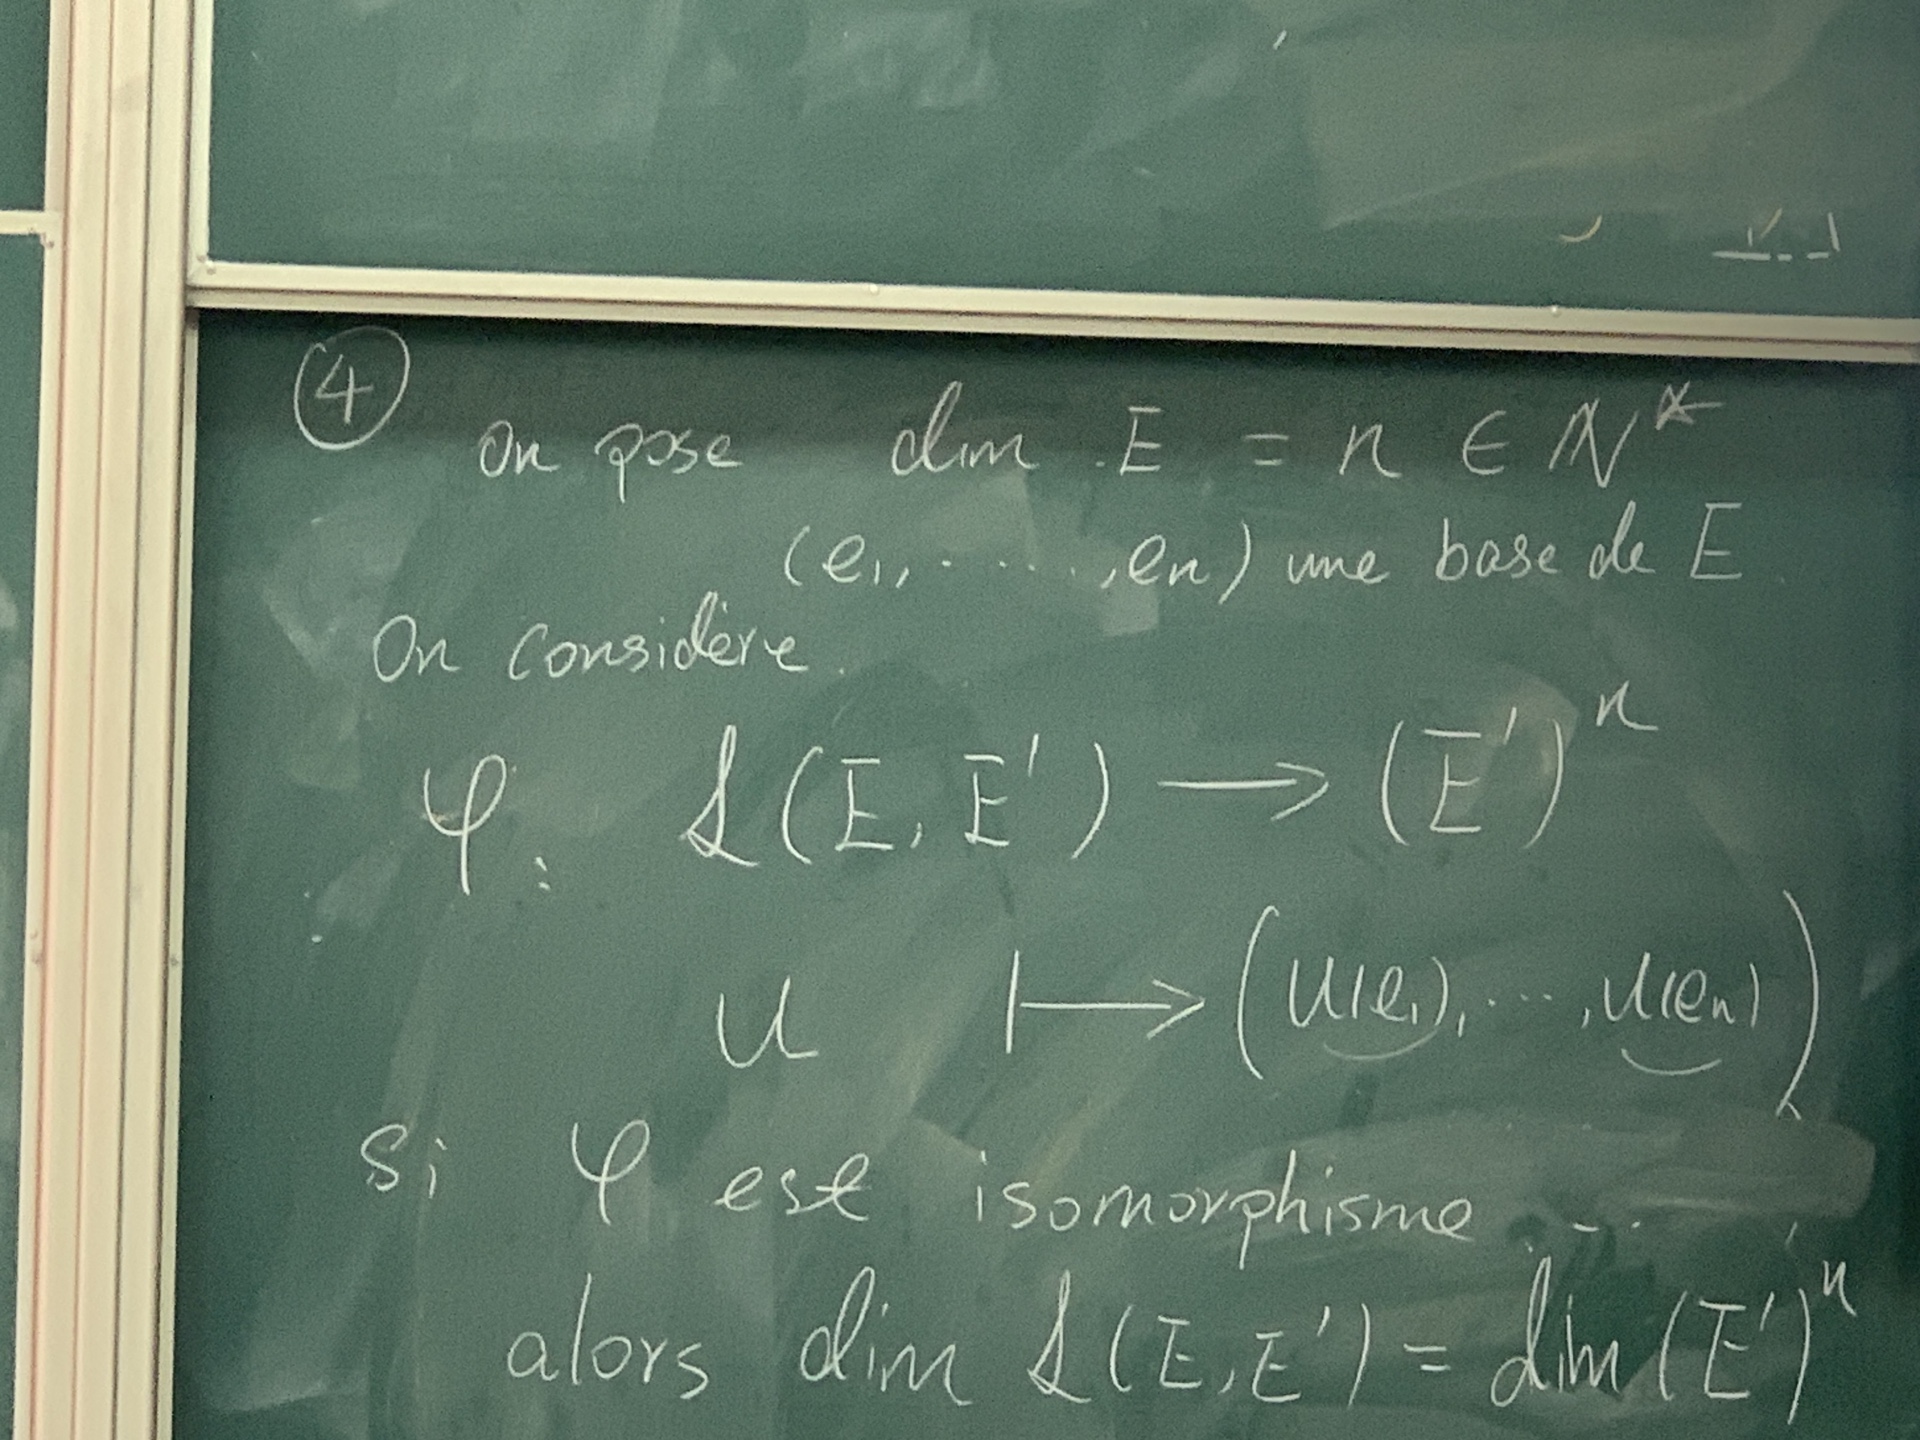 ④ on pose dim E = n ∈ ℕ*
(e₁, ....., eₙ) une base de E
On considère
φ : ℒ(E, E') ⟶ (E')ⁿ
u ⟼ (u(e₁), ..., u(eₙ))
si φ est isomorphisme ...
alors dim ℒ(E, E') = dim (E')ⁿ